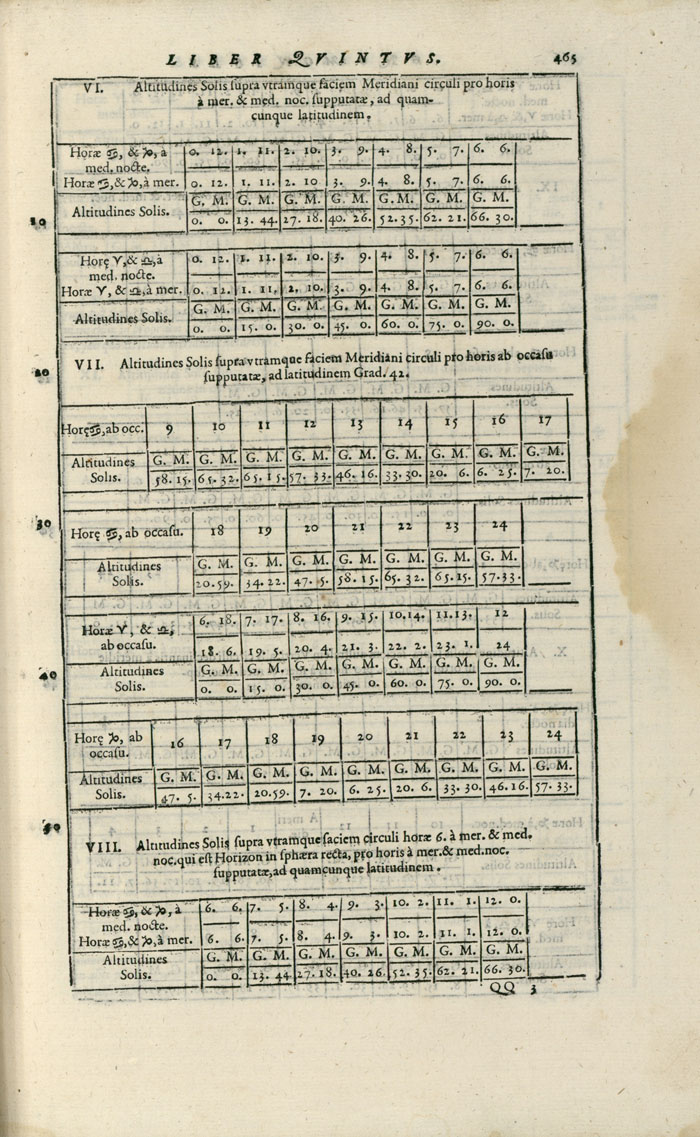 LIBER QVINTVS. 465
VI. Altitudines Solis supra vtramque faciem Meridiani circuli pro horis
à mer. & med. noc. supputatæ, ad quam-
cunque latitudinem.
Horæ ♋, & ♑, à 0. 12. 1. 11. 2. 10. 3. 9. 4. 8. 5. 7. 6. 6.
med. nocte.
Horæ ♋, & ♑, à mer. 0. 12. 1. 11. 2. 10 3. 9. 4. 8. 5. 7. 6. 6.
G. M. G. M. G. M. G. M. G. M. G. M. G. M.
10 Altitudines Solis. 0. 0. 13. 44. 27. 18. 40. 26. 52. 35. 62. 21. 66. 30.
Horę ♈, & ♎, à 0. 12. 1. 11. 2. 10. 3. 9. 4. 8. 5. 7. 6. 6.
med. nocte.
Horæ ♈, & ♎, à mer. 0. 12. 1. 11. 2. 10. 3. 9. 4. 8. 5. 7. 6. 6.
G. M. G. M. G. M. G. M. G. M. G. M. G. M.
Altitudines Solis. 0. 0. 15. 0. 30. 0. 45. 0. 60. 0. 75. 0. 90. 0.
20 VII. Altitudines Solis supra vtramque faciem Meridiani circuli pro horis ab occasu
supputatæ, ad latitudinem Grad. 42.
Horę ♋, ab occ. 9 10 11 12 13 14 15 16 17
Altitudines G. M. G. M. G. M. G. M. G. M. G. M. G. M. G. M. G. M.
Solis. 58. 15. 65. 32. 65. 15. 57. 33. 46. 16. 33. 30. 20. 6. 6. 25. 7. 20.
30 Horę ♋, ab occasu. 18 19 20 21 22 23 24
Altitudines G. M. G. M. G. M. G. M. G. M. G. M. G. M.
Solis. 20. 59. 34. 22. 47. 5. 58. 15. 65. 32. 65. 15. 57. 33.
Horæ ♈, & ♎, 6. 18. 7. 17. 8. 16. 9. 15. 10. 14. 11. 13. 12
ab occasu. 18. 6. 19. 5. 20. 4. 21. 3. 22. 2. 23. 1. 24
40 Altitudines G. M. G. M. G. M. G. M. G. M. G. M. G. M.
Solis. 0. 0. 15. 0. 30. 0. 45. 0. 60. 0. 75. 0. 90. 0.
Horę ♑, ab 16 17 18 19 20 21 22 23 24
occasu.
Altitudines G. M. G. M. G. M. G. M. G. M. G. M. G. M. G. M. G. M.
Solis. 47. 5. 34. 22. 20. 59. 7. 20. 6. 25. 20. 6. 33. 30. 46. 16. 57. 33.
50 VIII. Altitudines Solis supra vtramque faciem circuli horæ 6. à mer. & med.
noc. qui est Horizon in sphæra recta, pro horis à mer. & med. noc.
supputatæ, ad quamcunque latitudinem.
Horæ ♋, & ♑, à 6. 6. 7. 5. 8. 4. 9. 3. 10. 2. 11. 1. 12. 0.
med. nocte.
Horæ ♋, & ♑, à mer. 6. 6. 7. 5. 8. 4. 9. 3. 10. 2. 11. 1. 12. 0.
Altitudines G. M. G. M. G. M. G. M. G. M. G. M. G. M.
Solis. 0. 0. 13. 44. 27. 18. 40. 26. 52. 35. 62. 21. 66. 30.
QQ 3